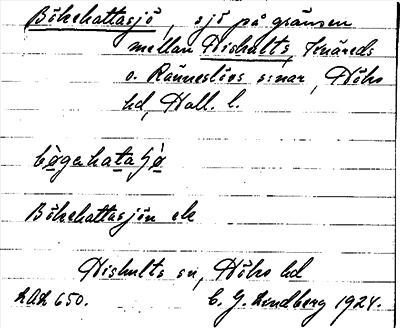 Bökehattasjö, sjö på gränsen
mellan Hishults, Knäreds
o. Ränneslövs s:nar, Höks
hd, Hall. l.
bögahatasjö
Bökehattasjön ek
Hishults sn, Höks hd
LAL 650. C. G. Lindberg 1924.